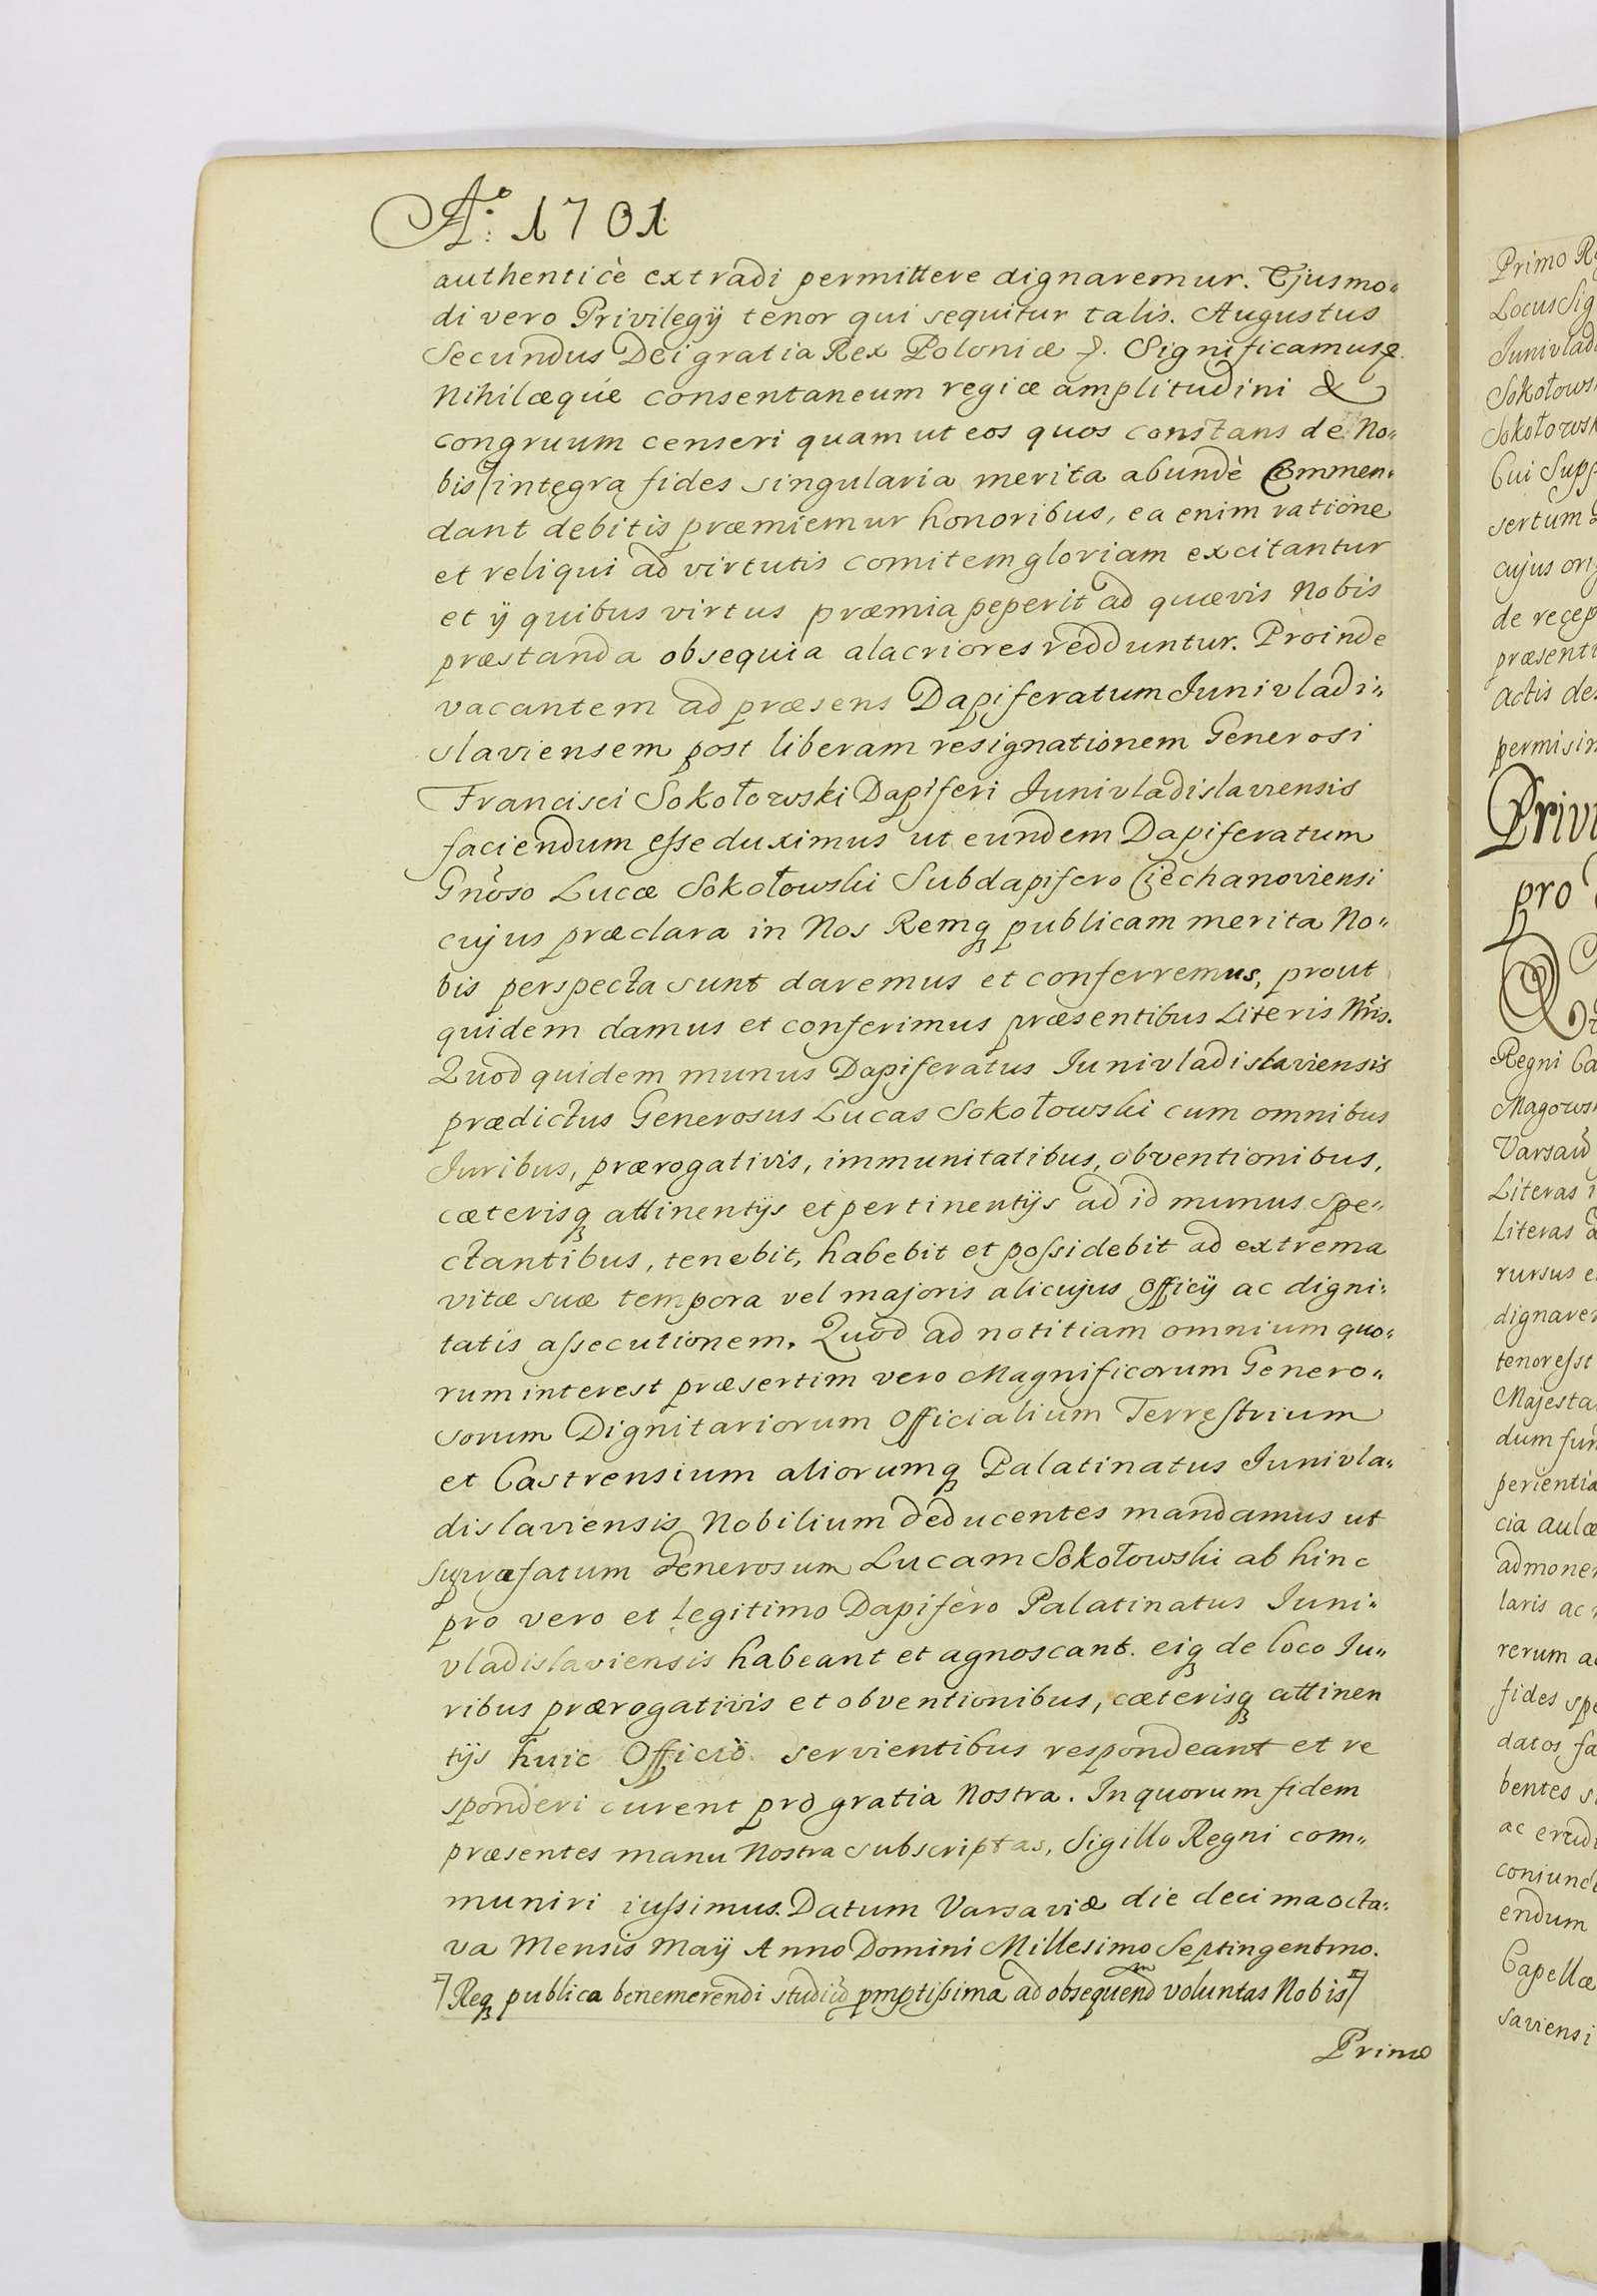 Aº: 1701
authenticè extradi permittere dignaremur. Ejusmo„
di vero Privilegÿ tenor qui sequitur talis. Augustus
Secundus Dei gratia Rex Poloniæ &. Significamus &.
Nihil æquè consentaneum regiæ amplitudini &
congruum censeri quam ut eos quos constans de No„
bis integra fides singularia merita abundè Commen„
dant debitis præmiemur honoribus, ea enim ratione
et reliqui ad virtutis comitem gloriam excitantur
et ÿ quibus virtus præmia peperit ad quævis Nobis
præstanda obsequia alacriores redduntur. Proinde
vacantem ad præsens Dapiferatum Junivladi„
slaviensem post liberam resignationem Generosi
Francisci Sokołowski Dapiferi Junivladislaviensis
faciendum esse duximus ut eundem Dapiferatum
Gnoso Lucæ Sokołowski Subdapifero Ciechanoviensi
cujus præclara in Nos Remq publicam merita No„
bis perspecta sunt daremus et conferremus, prout
quidem damus et conferimus præsentibus Literis Nris.
Quod quidem munus Dapiferatus Junivladislaviensis
prædictus Generosus Lucas Sokołowski cum omnibus
Juribus, prærogativis, immunitatibus, obventionibus,
cæterisq attinentÿs et pertinentÿs ad id munus spe„
ctantibus, tenebit, habebit et possidebit ad extrema
vitæ suæ tempora vel majoris alicujus Officÿ ac digni„
tatis assecutionem. Quod ad notitiam omnium quo„
rum interest præsertim vero Magnificorum Genero„
sorum Dignitariorum Officialium Terrestrium
et Castrensium aliorumq Palatinatus Junivla„
dislaviensis Nobilium deducentes mandamus ut
supræfatum Generosum Lucam Sokołowski ab hinc
pro vero et legitimo Dapifero Palatinatus Juni„
vladislaviensis habeant et agnoscant. eiq de loco Ju„
ribus prærogativis et obventionibus, cæterisq attinen
tÿs huic Officio servientibus respondeant et re
sponderi curent pro gratia Nostra. In quorum fidem
præsentes manu Nostra subscriptas, Sigillo Regni com„
muniri iussimus. Datum Varsaviæ die decima octa„
va Mensis Maÿ Anno Domini Millesimo Septingentmo.
Req publica benemerendi studiũ pmptissima ad obsequend voluntas Nobis
Primo
Primo Re
Locus Sig
Junivlad
Sokołows
Sokołowsk
Cui Supp
sertum
cujus ori
de recep
præsenti
actis de
permisim
Privi
pro
Regni Ca
Magows
Varsav
Literas i
Literas
rursus e
dignarem
tenor est
Majesta
dum fun
perientia
cia aulæ
admonem
laris ac
rerum a
fides spe
datos fa
bentes s
ac erudi
coniunct
endum
Capellæ
saviensi